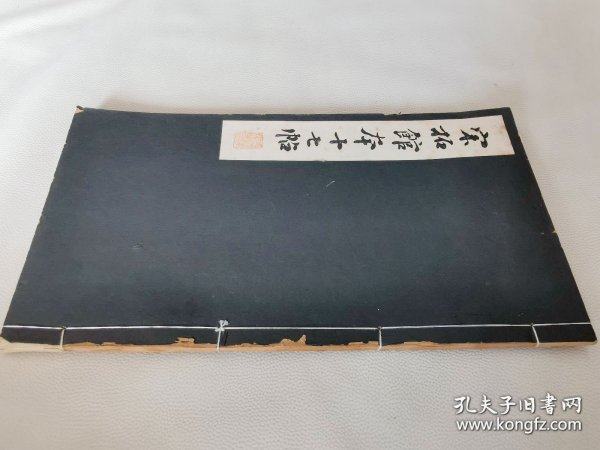 宋拓館本十七帖
孔夫子旧書网
www.kongfz.com